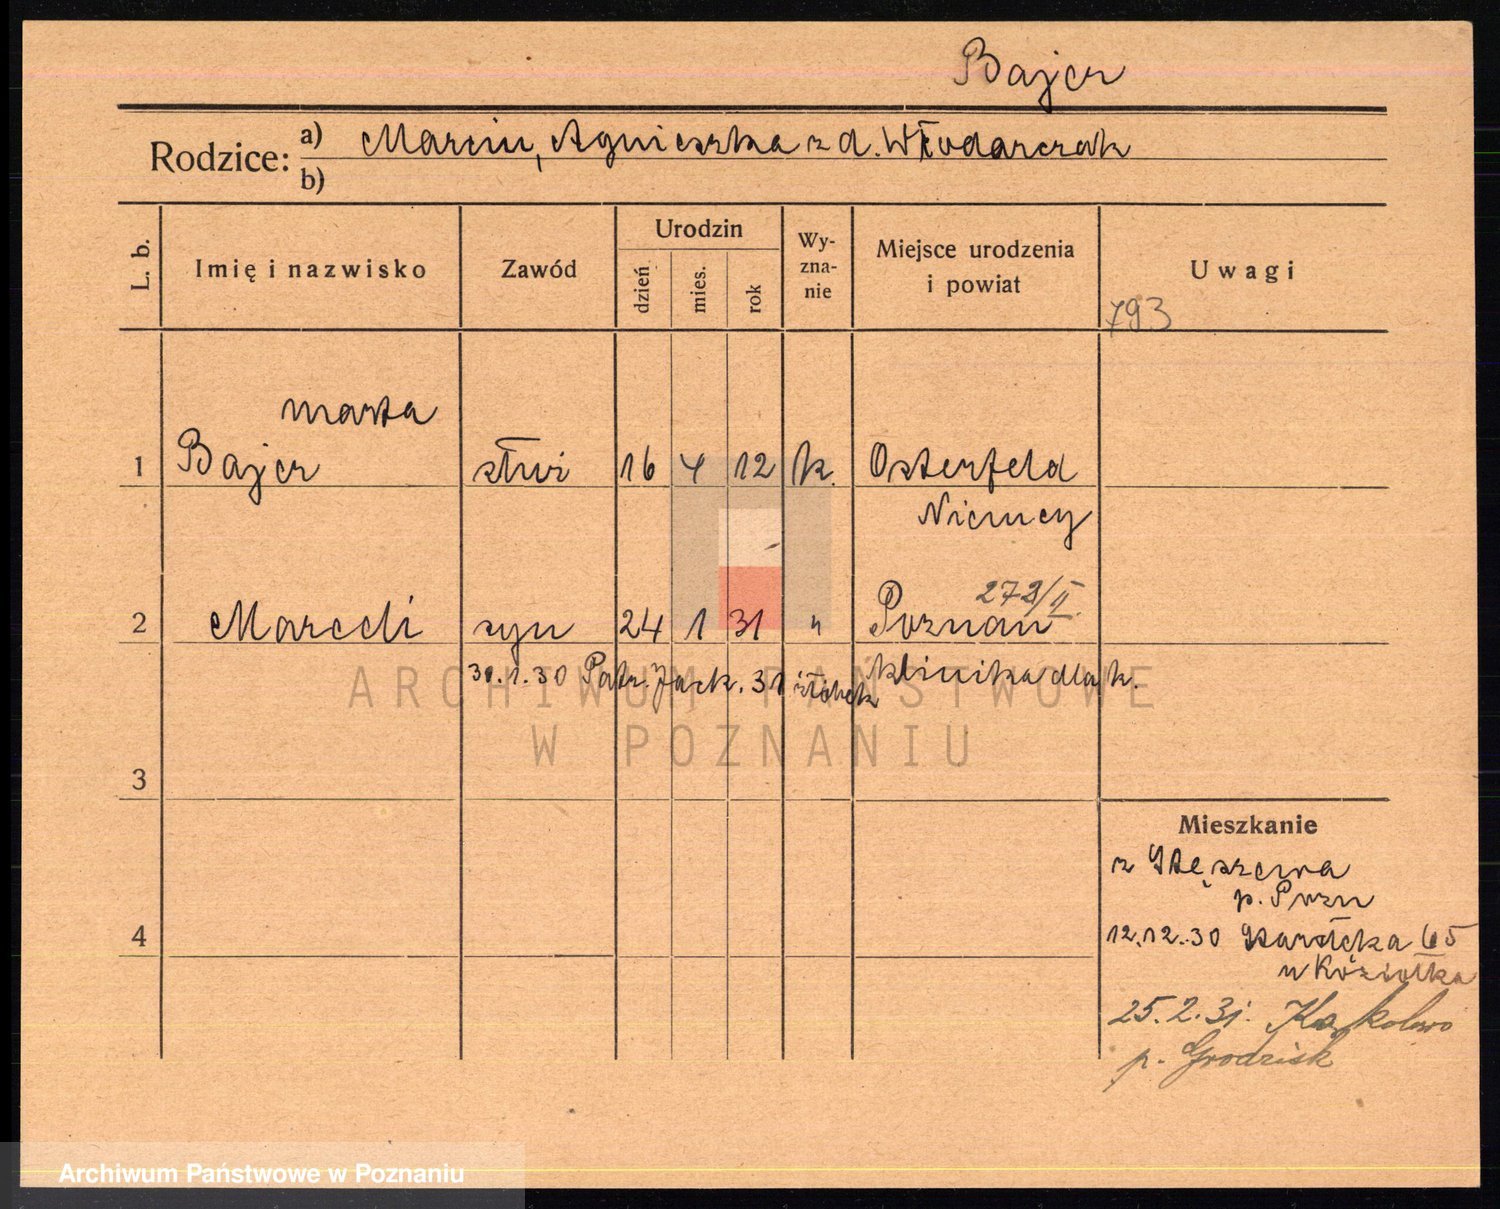 Bajer
Rodzice: a) Marcin, Agnieszka z d. Włodarczak
b)
L. b.
Imię i nazwisko
Zawód
Urodzin
dzień
mies.
rok
Wy-
zna-
nie
Miejsce urodzenia
i powiat
Uwagi
793
Marta
1 Bajer służ 16 4 12 k. Osterfeld
Niemcy
273/II.
2 Marceli syn 24 1 31 " Poznań
30.1.30 31 żłobek klinika dla k.
3
4
Mieszkanie
z Stęszewa
p. Pozn
12.12.30 65
u Koziołka
25.2.31. Kąkolewo
p. Grodzisk
ARCHIWUM PAŃSTWOWE
W POZNANIU
Archiwum Państwowe w Poznaniu